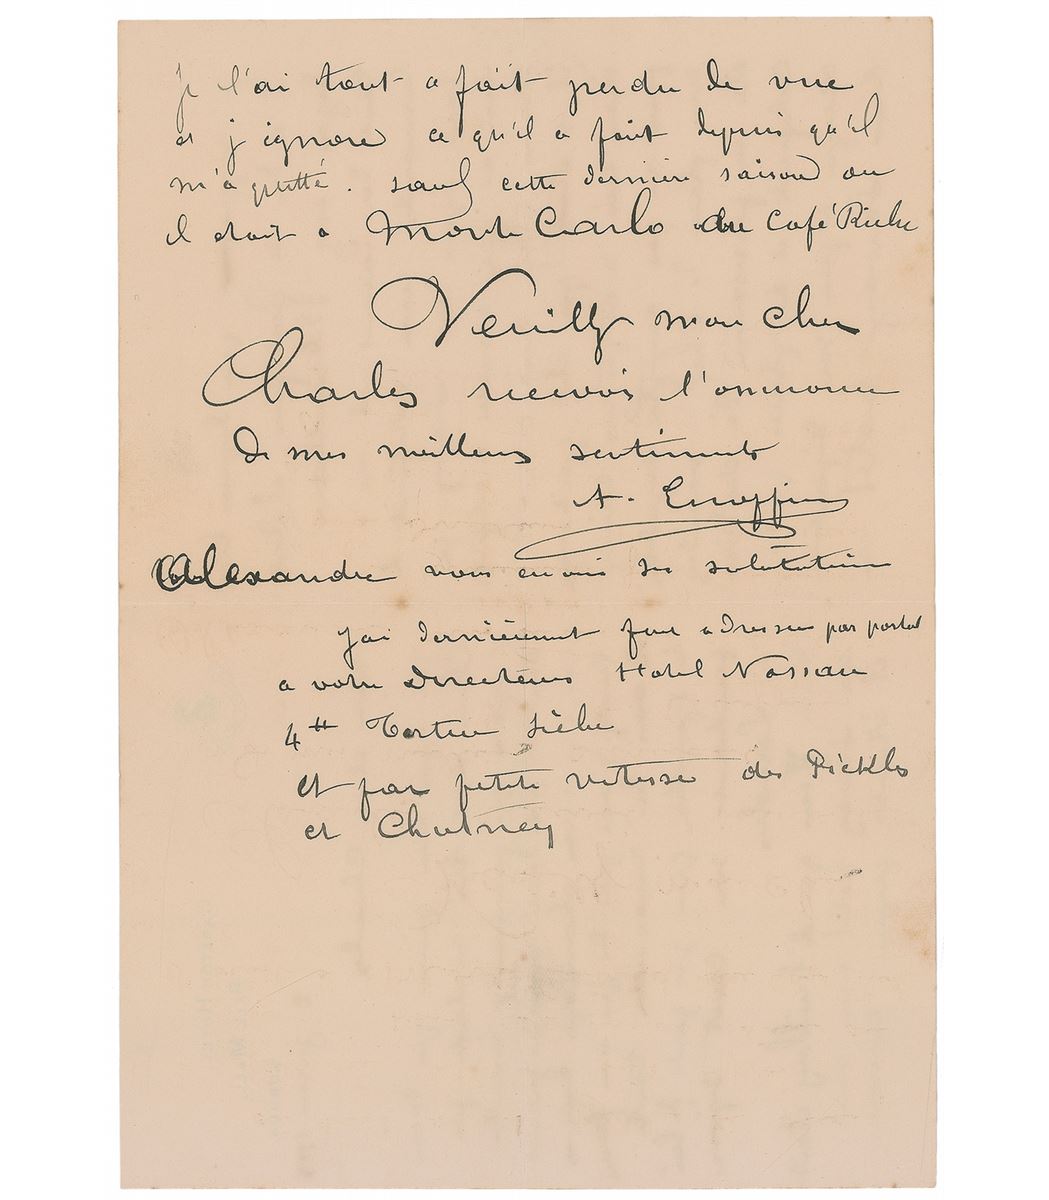 je l'ai tout a fait perdu de vue
et j'ignore ce qu'il a fait depuis qu'il
m'a quitté. sauf cette dernière saison ou
il etait a Monte Carlo au Café Riche
Veuillez mon cher
Charles recevoir l'assurance
de mes meilleurs sentiments
A.
Alexandre vous envoie ses salutations
J'ai dernièrement fait adresser par postal
a votre Directeur Hotel Nassau
4 tt Tortue sèche
et par petite vitesse des Pickles
et Chutney